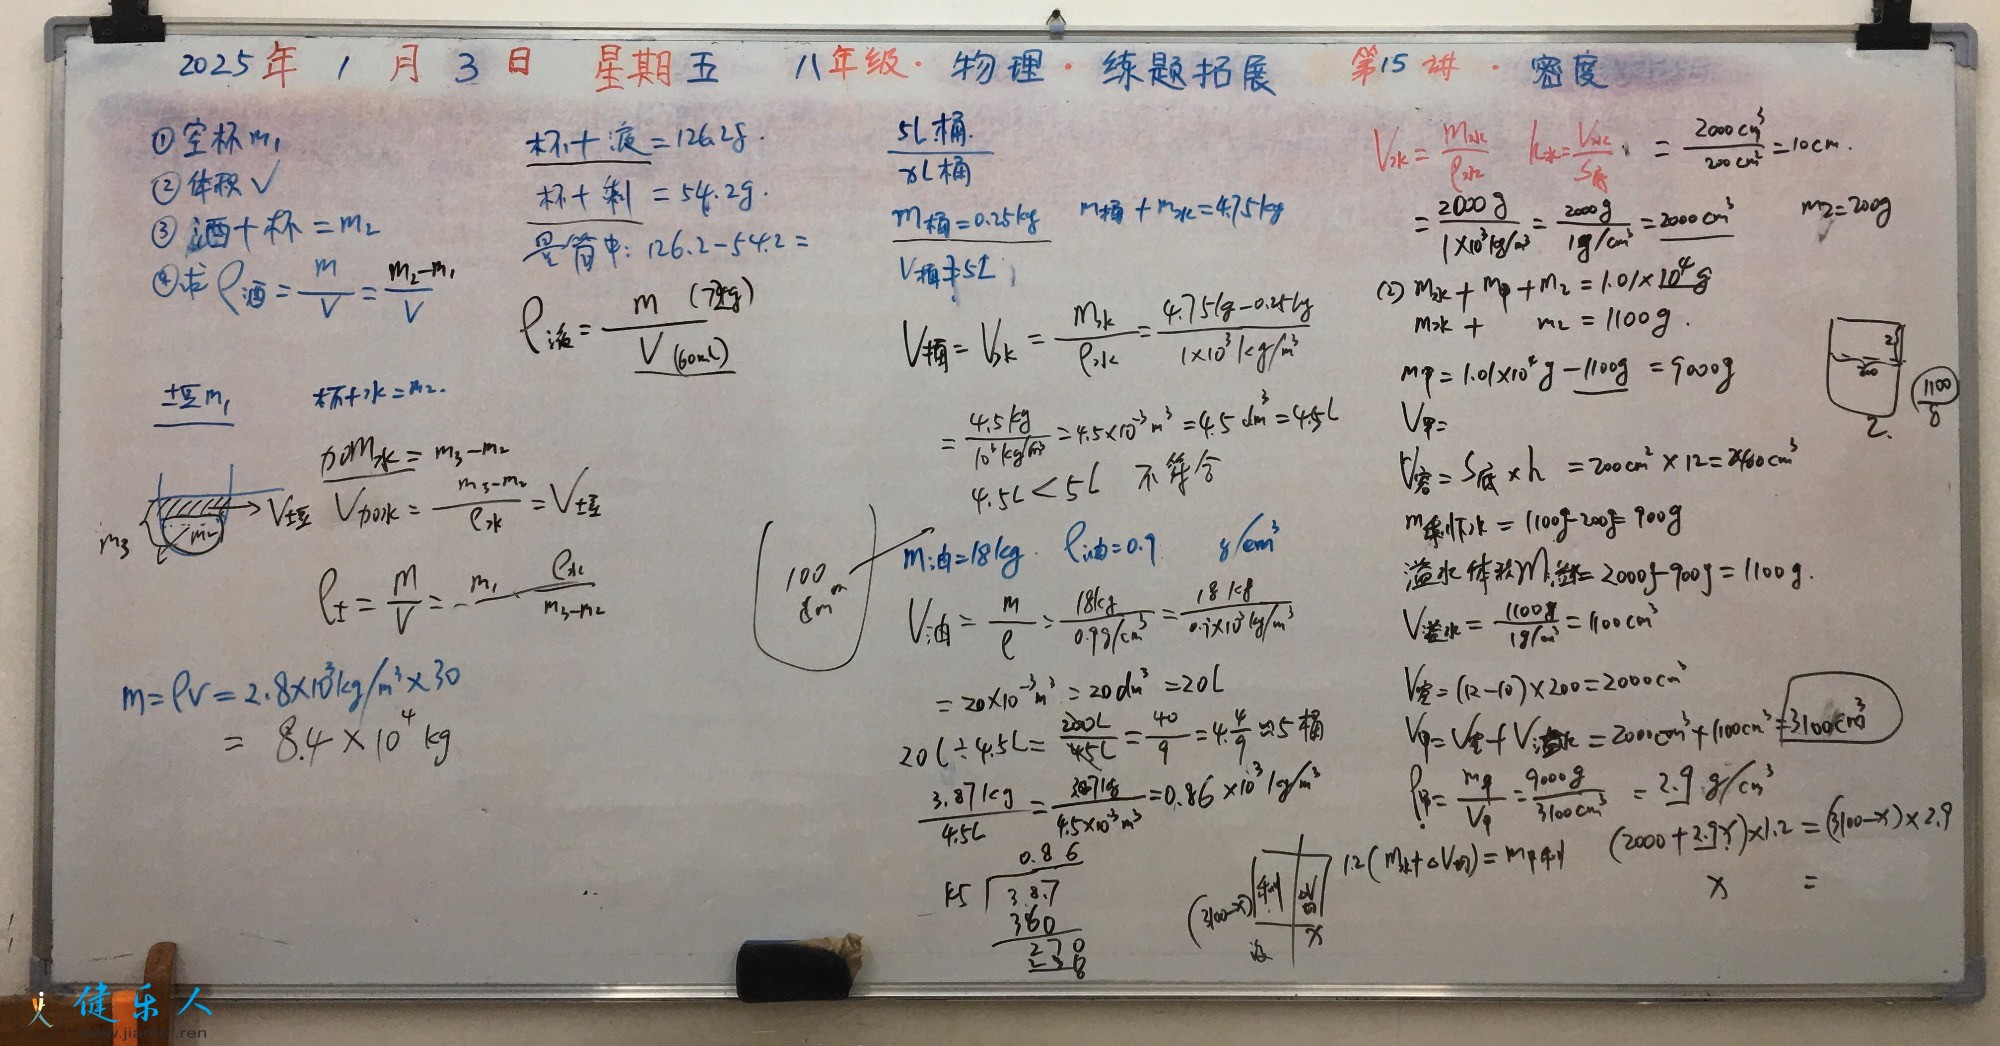 2025年1月3日 星期五 八年级·物理·练题拓展 第15讲·密度
①空杯m₁
②体积V
③酒+杯=m₂
④求ρ酒=m/V=(m₂-m₁)/V
土豆m₁ 杯+水=m₂.
加m水=m₃-m₂
V加水=(m₃-m₂)/ρ水=V土豆
V土豆
m₃
m₂
m=ρV=2.8×10³kg/m³×30
=8.4×10⁴kg
杯+液=126.2g.
杯+剩=54.2g.
量筒中:126.2-54.2=
V(60mL)
5L桶
xL桶
m桶=0.25kg m桶+m水=4.75kg
V桶≠5L
V桶=V水=m水/ρ水=(4.75kg-0.25kg)/(1×10³kg/m³)
=4.5kg/(10³kg/m³)=4.5×10⁻³m³=4.5dm³=4.5L
4.5L<5L 不符合
100
m油=18kg. ρ油=0.9 g/cm³
V油=m/ρ=18kg/(0.9g/cm³)=18kg/(0.9×10³kg/m³)
=20×10⁻³m³=20dm³=20L
20L÷4.5L=200L/45L=40/9=4 4/9≈5桶
3.87kg/4.5L=3.87kg/(4.5×10⁻³m³)=0.86×10³kg/m³
0.86
387
360
270
V水=m水/ρ水 h水=V水/S底=2000cm³/200cm²=10cm.
=2000g/(1×10³kg/m³)=2000g/(1g/cm³)=2000cm³ m₂=200g
(2) m水+m甲+m₂=1.01×10⁴g
m水+ m₂=1100g.
m甲=1.01×10⁴g-1100g=9000g
V甲=
V容=S底×h=200cm²×12=2400cm³
m剩下水=1100g-200g=900g
溢水体积m溢水=2000g-900g=1100g.
V溢水=1100g/(1g/cm³)=1100cm³
V空=(12-10)×200=2000cm³
V甲=V空+V溢水=2000cm³+1100cm³=3100cm³
ρ甲=m甲/V甲=9000g/3100cm³=2.9g/cm³
(2000+2.9x)×1.2=(3100-x)×2.9
x =
(3100-x)
x
健乐人